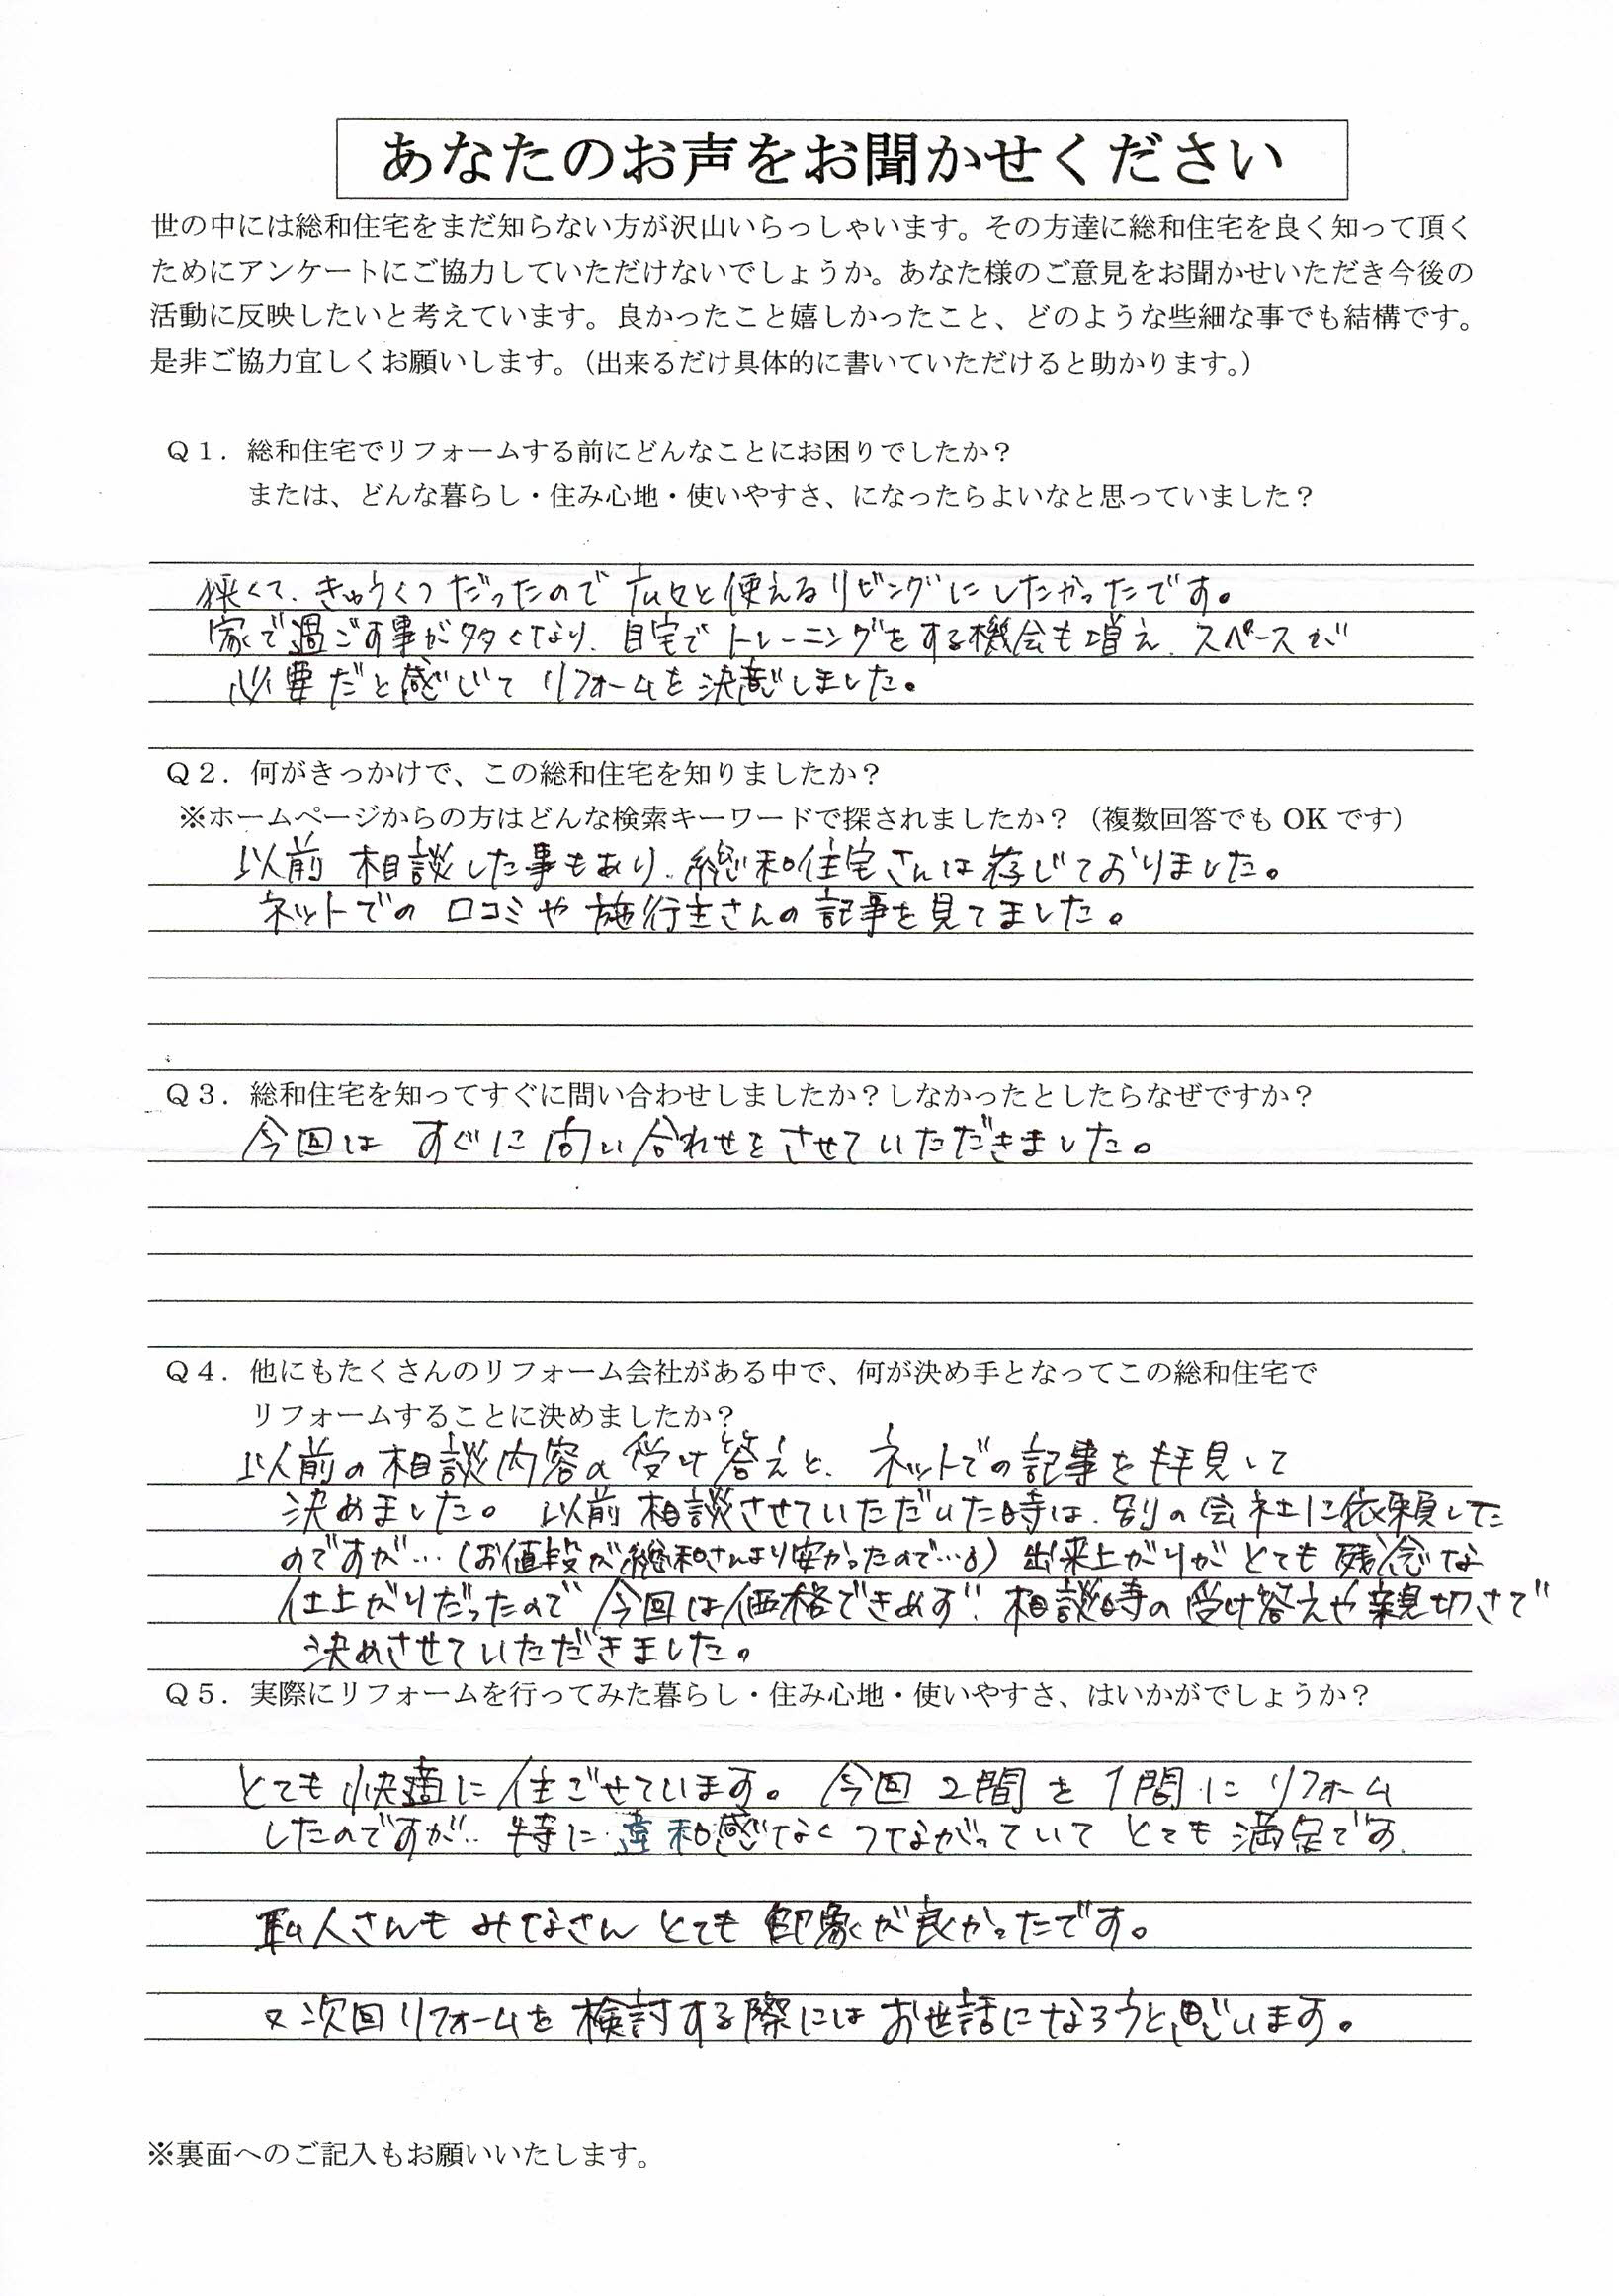 あなたのお声をお聞かせください
世の中には総和住宅をまだ知らない方が沢山いらっしゃいます。その方達に総和住宅を良く知って頂く
ためにアンケートにご協力していただけないでしょうか。あなた様のご意見をお聞かせいただき今後の
活動に反映したいと考えています。良かったこと嬉しかったこと、どのような些細な事でも結構です。
是非ご協力宜しくお願いします。（出来るだけ具体的に書いていただけると助かります。）
Q１．総和住宅でリフォームする前にどんなことにお困りでしたか？
または、どんな暮らし・住み心地・使いやすさ、になったらよいなと思っていました？
狭くて、きゅうくつだったので広々と使えるリビングにしたかったです。
家で過ごす事が多くなり、自宅でトレーニングをする機会も増え、スペースが
必要だと感じてリフォームを決意しました。
Q２．何がきっかけで、この総和住宅を知りましたか？
※ホームページからの方はどんな検索キーワードで探されましたか？（複数回答でも OK です）
以前 相談した事もあり、総和住宅さんは存じておりました。
ネットでの口コミや施行主さんの記事を見てました。
Q３．総和住宅を知ってすぐに問い合わせしましたか？しなかったとしたらなぜですか？
今回は すぐに問い合わせをさせていただきました。
Q４．他にもたくさんのリフォーム会社がある中で、何が決め手となってこの総和住宅で
リフォームすることに決めましたか？
以前の相談内容の受け答えと、ネットでの記事を拝見して
決めました。以前相談させていただいた時は、別の会社に依頼した
のですが…（お値段が総和さんより安かったので…）出来上がりがとても残念な
仕上がりだったので今回は価格できめず、相談時の受け答えや親切さで
決めさせていただきました。
Q５．実際にリフォームを行ってみた暮らし・住み心地・使いやすさ、はいかがでしょうか？
とても快適に住ごせています。今回 2間を1間にリフォーム
したのですが…特に違和感なくつながっていてとても満足です。
職人さんもみなさん とても印象が良かったです。
又次回リフォームを検討する際にはお世話になろうと思います。
※裏面へのご記入もお願いいたします。